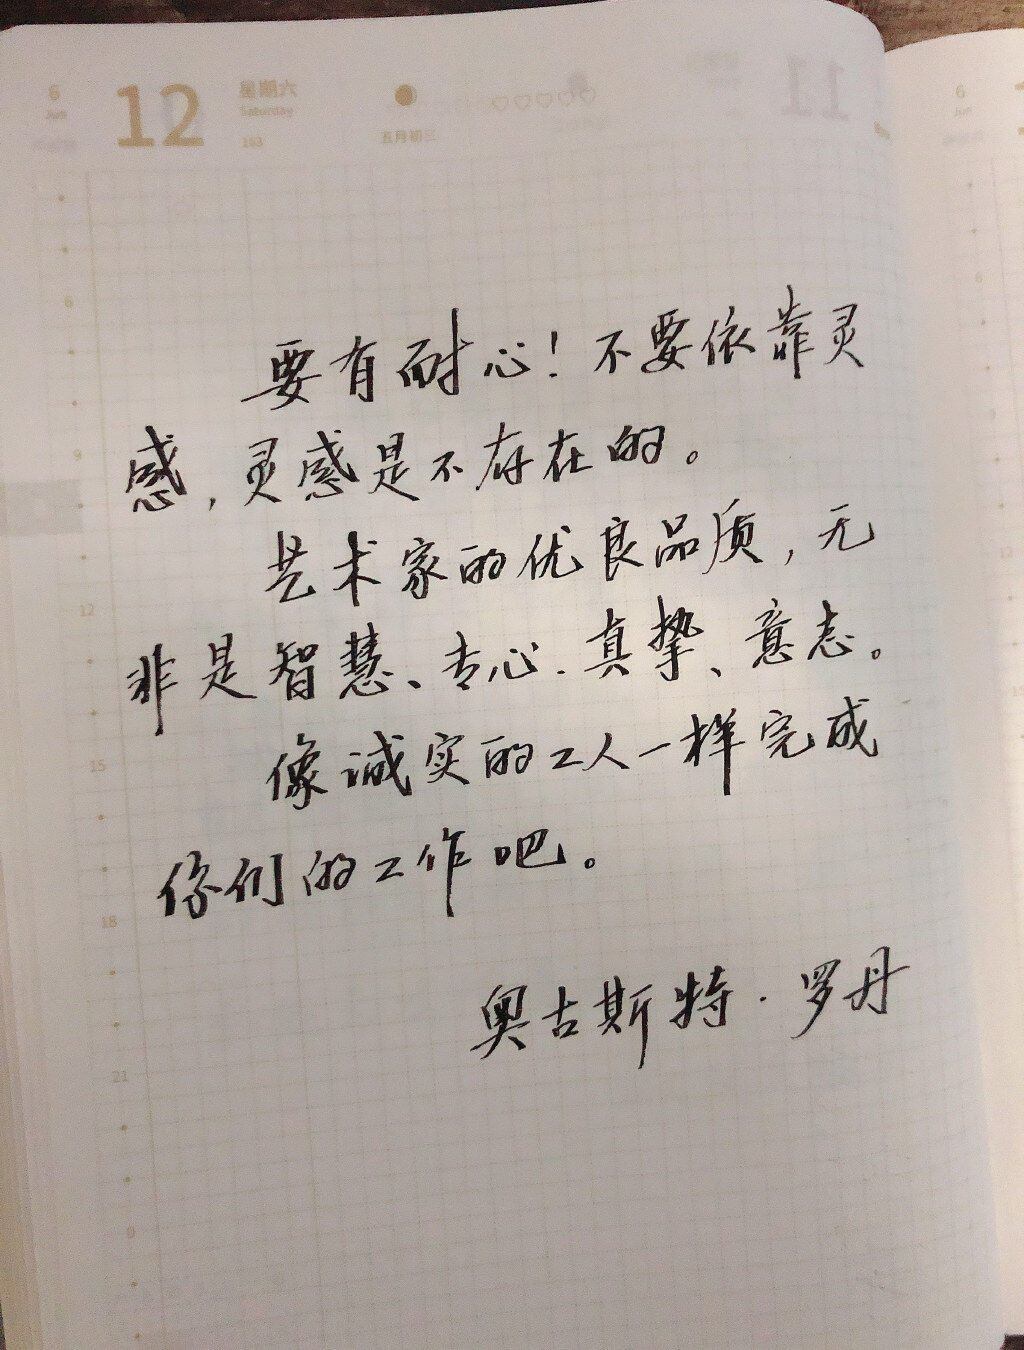 6 12 星期六
Jun Saturday
163 五月初三
6
9
12
15
18
21
要有耐心！不要依靠灵
感，灵感是不存在的。
艺术家的优良品质，无
非是智慧、专心、真挚、意志。
像诚实的工人一样完成
你们的工作吧。
奥古斯特·罗丹